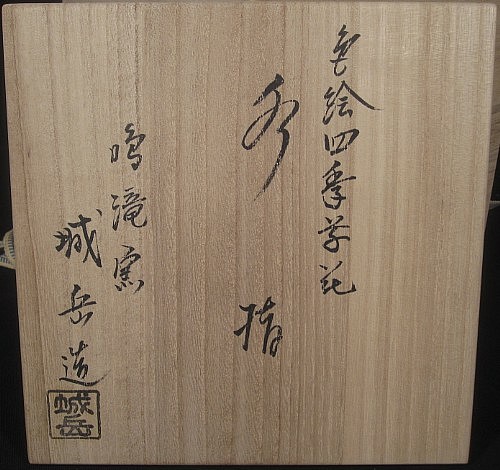 色絵四季草花
水指
鳴滝窯
城岳造
城岳